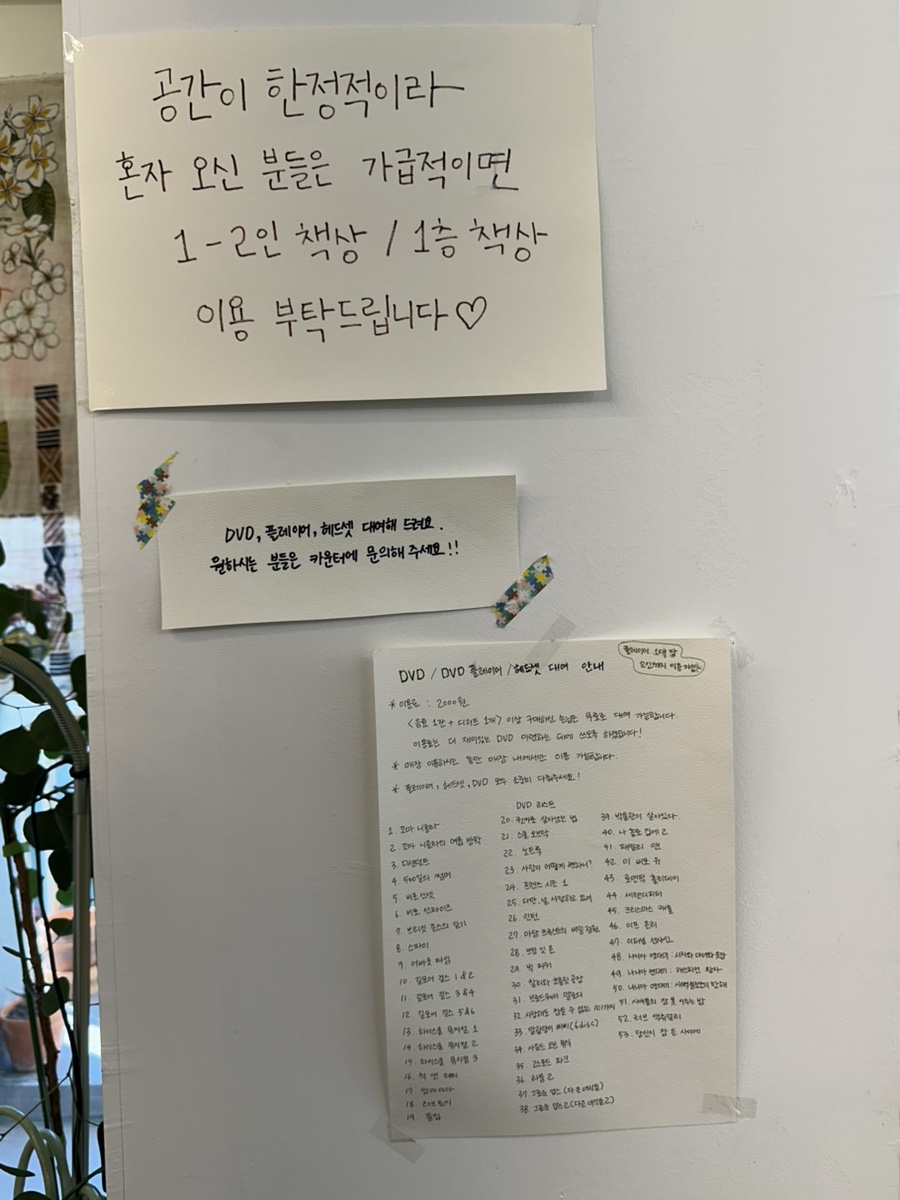 공간이 한정적이라
혼자 오신 분들은 가급적이면
1-2인 책상 / 1층 책상
이용 부탁드립니다♡
DVD, 플레이어, 헤드셋 대여해 드려요.
원하시는 분들은 카운터에 문의해 주세요!!
플레이어 1대 당
2인까지 이용 가능
DVD / DVD 플레이어 / 헤드셋 대여 안내
* 이용료 : 2000원
<음료 1잔 + 디저트 1개> 이상 구매하신 손님은 무료로 대여 가능합니다.
이용료는 더 재미있는 DVD 마련하는 데에 쓰도록 하겠습니다!
* 매장 이용하시는 동안 매장 내에서만 이용 가능합니다.
* 플레이어, 헤드셋, DVD 모두 소중히 다뤄주세요!
DVD 리스트
1. 꼬마 니콜라
2. 꼬마 니콜라의 여름 방학
3. 디센던트
4. 500일의 썸머
5. 비포 선셋
6. 비포 선라이즈
7. 브리짓 존스의 일기
8. 스파이
9. 어바웃 타임
10. 길모어 걸스 1 & 2
11. 길모어 걸스 3 & 4
12. 길모어 걸스 5 & 6
13. 하이스쿨 뮤지컬 1
14. 하이스쿨 뮤지컬 2
15. 하이스쿨 뮤지컬 3
16.
17. 맘마미아
18.
19.
20.
21. 스쿨 오브 락
22. 노트북
23. 사랑이 어떻게 변하니?
24. 프렌즈 시즌 1
25. 다만, 널 사랑하고 있어
26. 인턴
27. 마담 프루스트의 비밀 정원
28. 브링 잇 온
29. 빅 피쉬
30. 찰리와 초콜릿 공장
31. 브로드웨이 멜로디
32. 사랑해도 참을 수 없는 10가지
33. 말괄량이 삐삐 (6 disc)
34. 사운드 오브 뮤직
35. 고스포드 파크
36. 러블 2
37. 그로운 업스 (다 큰 녀석들)
38. 그로운 업스 2 (다 큰 녀석들 2)
39. 박물관이 살아있다.
40. 나 홀로 집에 2
41. 패밀리 맨
42. 미 비포 유
43. 로맨틱 홀리데이
44. 세렌디피티
45. 크리스마스 캐롤
46. 이프 온리
47. 이터널 선샤인
48. 나니아 연대기 : 사자와 마녀와 옷장
49. 나니아 연대기 : 캐스피언 왕자
50. 나니아 연대기 : 새벽출정호의 항해
51. 시애틀의 잠 못 이루는 밤
52. 러브 액츄얼리
53. 당신이 잠든 사이에